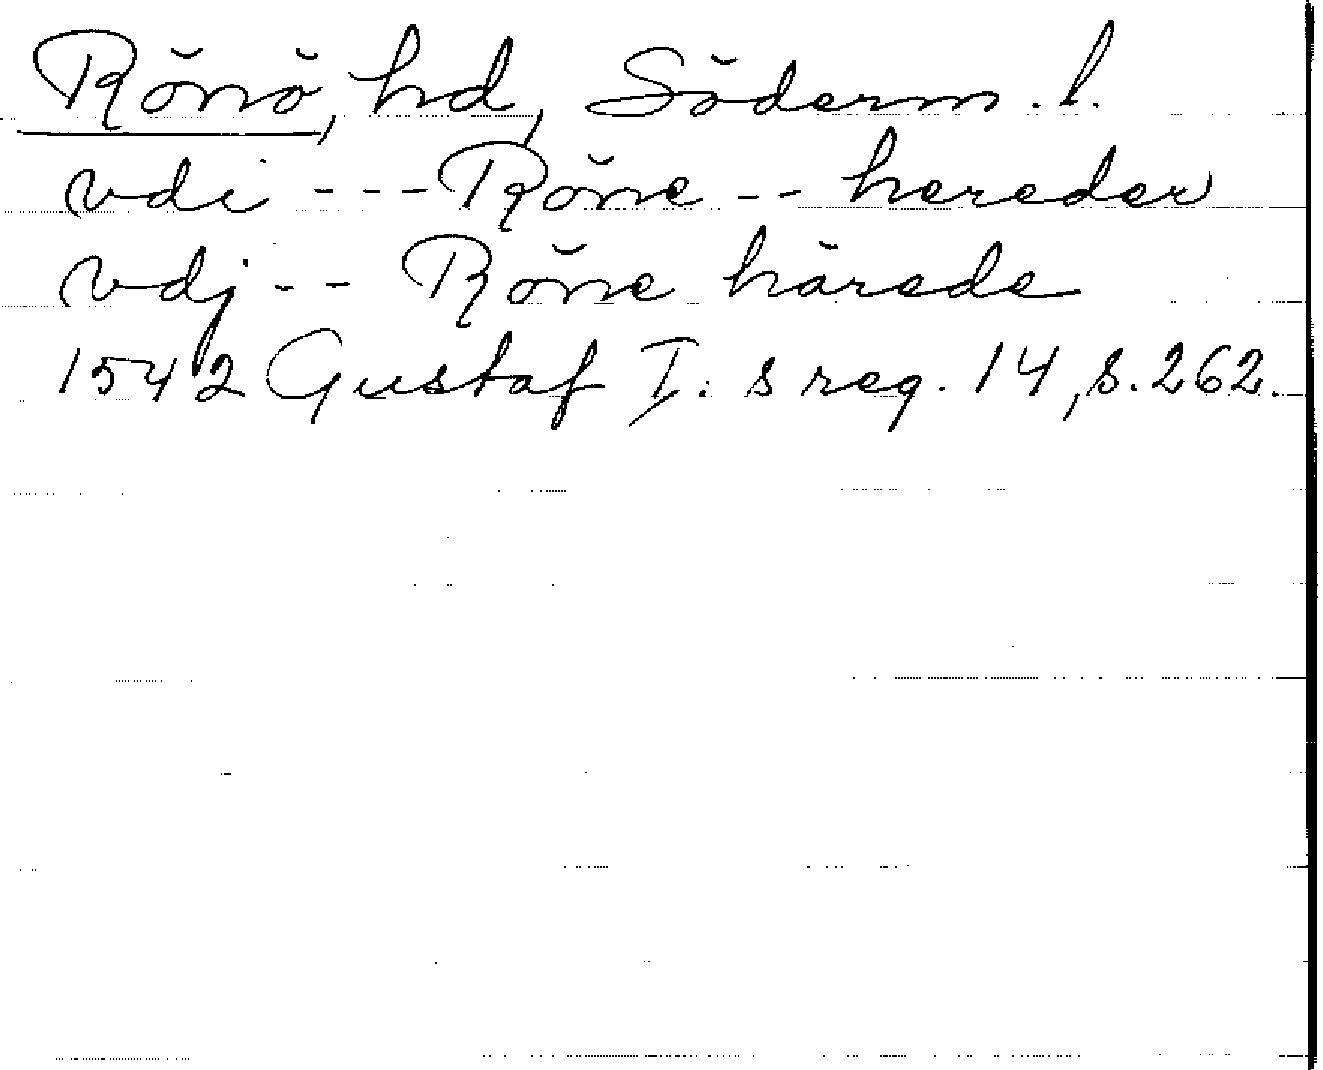 Rönö, hd, Söderm. l.
vdi --- Röne -- hereder
vdj -- Röne härede
1542 Gustaf I: s reg. 14, s. 262.